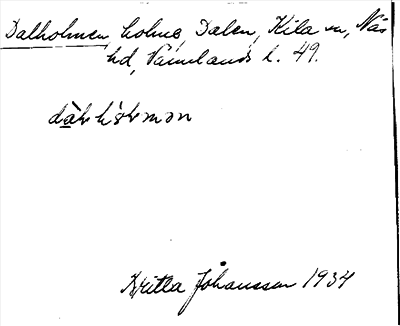 Dalholmen, holme, Dalen, Kila sn, Näs
hd, Värmlands l. 49.
Johansson 1934